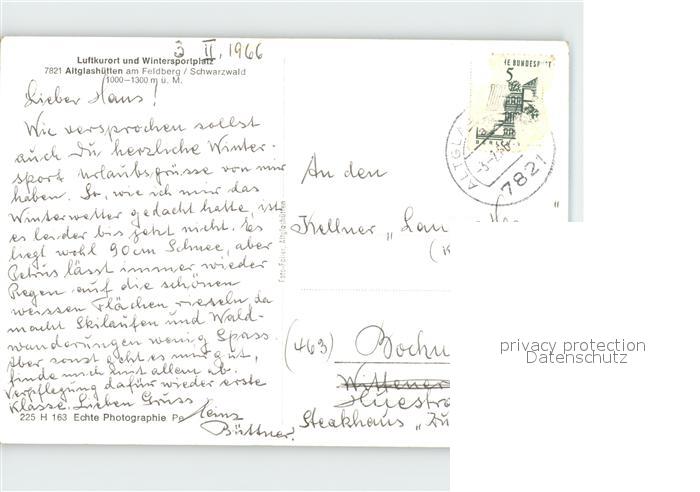 3 II. 1966
Luftkurort und Wintersportplatz
7821 Altglashütten am Feldberg / Schwarzwald
1000–1300 m ü. M.
Lieber Hans!
Wie versprochen sollst
auch Du herzliche Winter-
sport Urlaubsgrüsse von mir
haben. So, wie ich mir das
Winterwetter gedacht hatte, ist
es leider bis jetzt nicht. Es
liegt wohl 90cm Schnee, aber
Petrus lässt immer wieder
Regen auf die schönen
weissen Flächen rieseln, da
macht Skilaufen und Wald-
wanderungen wenig Spass.
Aber sonst geht es mir gut,
finde mich mit allem ab.
Verpflegung dafür wieder erste
Klasse. Lieben Gruss
Heinz
Büttner.
225 H 163 Echte Photographie
5
ALTGLA
7821
An den
Kellner „
(463) Bochu
Wittener
Huestra
Steakhaus „Zu
privacy protection
Datenschutz